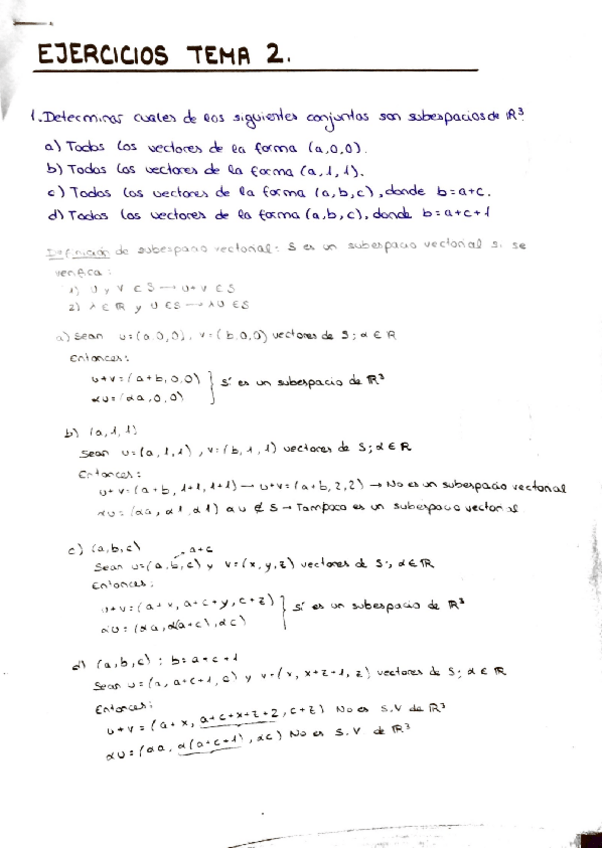 EJERCICIOS TEMA 2.
1. Determinar cuales de los siguientes conjuntos son subespacios de ℝ³.
a) Todos los vectores de la forma (a,0,0).
b) Todos los vectores de la forma (a,1,1).
c) Todos los vectores de la forma (a,b,c), donde b=a+c.
d) Todos los vectores de la forma (a,b,c), donde b=a+c+1
Definición de subespacio vectorial: S es un subespacio vectorial si se
verifica:
1) U y V ∈ S → U+V ∈ S
2) λ ∈ ℝ y U ∈ S → λU ∈ S
a) Sean u=(a,0,0), v=(b,0,0) vectores de S; α ∈ ℝ
Entonces:
u+v=(a+b,0,0) } Sí es un subespacio de ℝ³
αu=(αa,0,0)
b) (a,1,1)
Sean u=(a,1,1), v=(b,1,1) vectores de S; α ∈ ℝ
Entonces:
u+v=(a+b,1+1,1+1) → u+v=(a+b,2,2) → No es un subespacio vectorial
αu=(αa,α1,α1) αu ∉ S → Tampoco es un subespacio vectorial
c) (a,b,c) a+c
Sean u=(a,b,c) y v=(x,y,z) vectores de S; α ∈ ℝ
Entonces:
u+v=(a+v,a+c+y,c+z) } Sí es un subespacio de ℝ³
αu=(αa,α(a+c),αc)
d) (a,b,c): b=a+c+1
Sean u=(a,a+c+1,c) y v=(x,x+z+1,z) vectores de S; α ∈ ℝ
Entonces:
u+v=(a+x,a+c+x+z+2,c+z) No es S.V de ℝ³
αu=(αa,α(a+c+1),αc) No es S.V de ℝ³